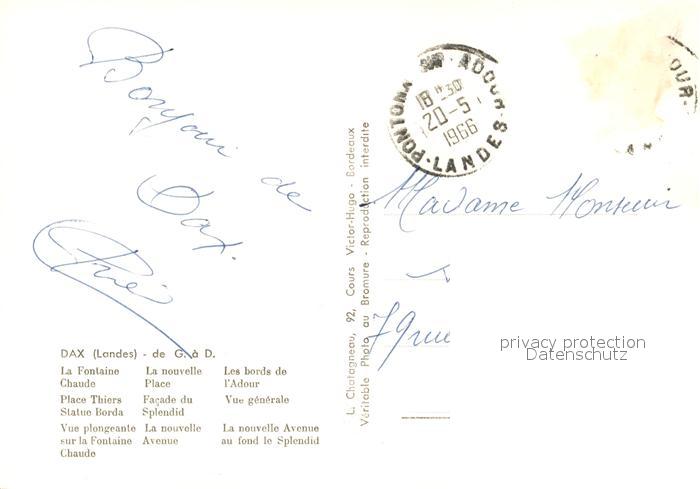 Bonjour
de
Dax.
DAX (Landes) - de G. à D.
La Fontaine Chaude
La nouvelle Place
Les bords de l'Adour
Place Thiers Statue Borda
Façade du Splendid
Vue générale
Vue plongeante sur la Fontaine Chaude
La nouvelle Avenue
La nouvelle Avenue au fond le Splendid
L. Chatagneau, 92, Cours Victor-Hugo - Bordeaux
Véritable Photo au Bromure - Reproduction interdite
PONTONX SUR ADOUR
18H30
20-5
1966
LANDES
OUR
Madame Monsieur
79 rue
privacy protection
Datenschutz